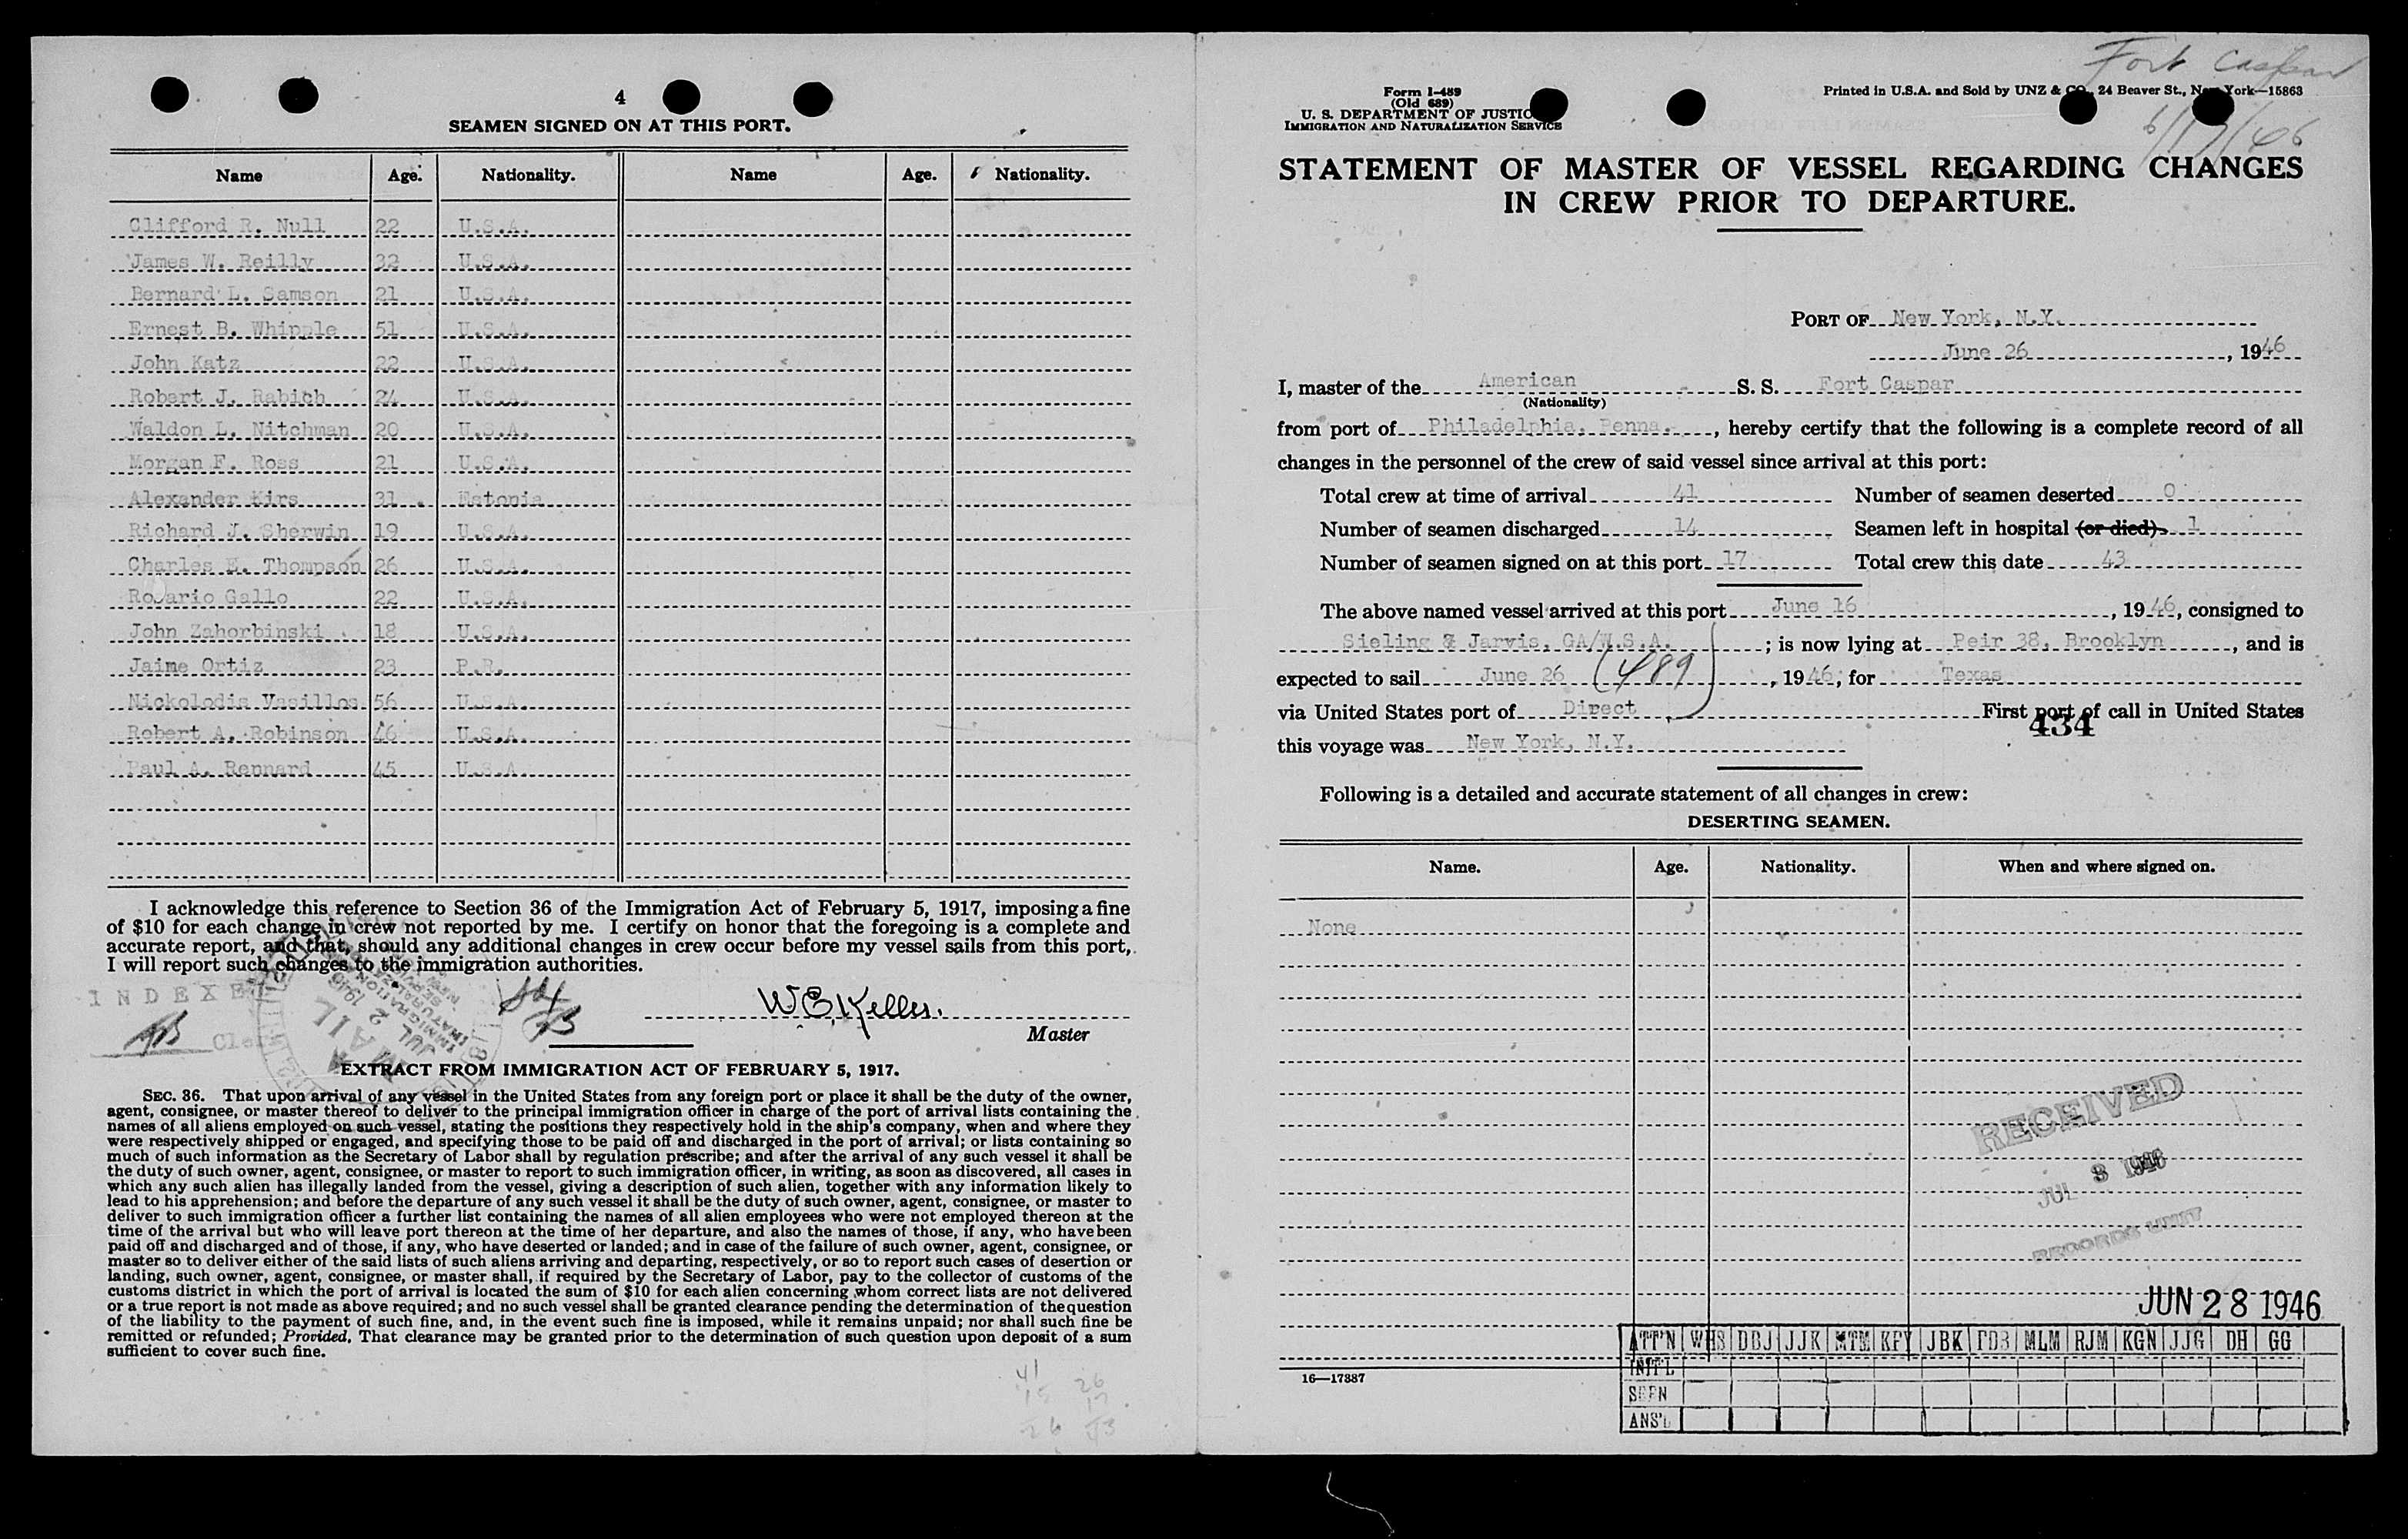 4
SEAMEN SIGNED ON AT THIS PORT.
Name Age. Nationality. Name Age. Nationality.
Clifford R. Null 22 U.S.A.
James W. Reilly 32 U.S.A.
Bernard L. Samson 21 U.S.A.
Ernest B. Whipple 51 U.S.A.
John Katz 22 U.S.A.
Robert J. Rabich 24 U.S.A.
Waldon L. Nitchman 20 U.S.A.
Morgan F. Ross 21 U.S.A.
Alexander Kirs 31 Estonia
Richard J. Sherwin 19 U.S.A.
Charles E. Thompson 26 U.S.A.
Rosario Gallo 22 U.S.A.
John Zahorbinski 18 U.S.A.
Jaime Ortiz 23 P.R.
Nickolodis Vasillos 56 U.S.A.
Robert A. Robinson 46 U.S.A.
Paul A. Rennard 45 U.S.A.
I acknowledge this reference to Section 36 of the Immigration Act of February 5, 1917, imposing a fine
of $10 for each change in crew not reported by me. I certify on honor that the foregoing is a complete and
accurate report, and that, should any additional changes in crew occur before my vessel sails from this port,
I will report such changes to the immigration authorities.
INDEXE
Cle
MAIL
JUL 2 1946
W E Keller.
Master
EXTRACT FROM IMMIGRATION ACT OF FEBRUARY 5, 1917.
SEC. 36. That upon arrival of any vessel in the United States from any foreign port or place it shall be the duty of the owner,
agent, consignee, or master thereof to deliver to the principal immigration officer in charge of the port of arrival lists containing the
names of all aliens employed on such vessel, stating the positions they respectively hold in the ship's company, when and where they
were respectively shipped or engaged, and specifying those to be paid off and discharged in the port of arrival; or lists containing so
much of such information as the Secretary of Labor shall by regulation prescribe; and after the arrival of any such vessel it shall be
the duty of such owner, agent, consignee, or master to report to such immigration officer, in writing, as soon as discovered, all cases in
which any such alien has illegally landed from the vessel, giving a description of such alien, together with any information likely to
lead to his apprehension; and before the departure of any such vessel it shall be the duty of such owner, agent, consignee, or master to
deliver to such immigration officer a further list containing the names of all alien employees who were not employed thereon at the
time of the arrival but who will leave port thereon at the time of her departure, and also the names of those, if any, who have been
paid off and discharged and of those, if any, who have deserted or landed; and in case of the failure of such owner, agent, consignee, or
master so to deliver either of the said lists of such aliens arriving and departing, respectively, or so to report such cases of desertion or
landing, such owner, agent, consignee, or master shall, if required by the Secretary of Labor, pay to the collector of customs of the
customs district in which the port of arrival is located the sum of $10 for each alien concerning whom correct lists are not delivered
or a true report is not made as above required; and no such vessel shall be granted clearance pending the determination of the question
of the liability to the payment of such fine, and, in the event such fine is imposed, while it remains unpaid; nor shall such fine be
remitted or refunded; Provided, That clearance may be granted prior to the determination of such question upon deposit of a sum
sufficient to cover such fine.
41 26
15 17
26 43
Fort Caspar
6/17/46
Form I-489
(Old 689)
U. S. DEPARTMENT OF JUSTIC
IMMIGRATION AND NATURALIZATION SERVICE
Printed in U.S.A. and Sold by UNZ & CO., 24 Beaver St., New York—15863
STATEMENT OF MASTER OF VESSEL REGARDING CHANGES
IN CREW PRIOR TO DEPARTURE.
PORT OF New York, N.Y.
June 26, 1946
I, master of the American S. S. Fort Caspar
(Nationality)
from port of Philadelphia, Penna., hereby certify that the following is a complete record of all
changes in the personnel of the crew of said vessel since arrival at this port:
Total crew at time of arrival 41 Number of seamen deserted 0
Number of seamen discharged 14 Seamen left in hospital (or died) 1
Number of seamen signed on at this port 17 Total crew this date 43
The above named vessel arrived at this port June 16, 1946, consigned to
Sieling & Jarvis, GA/W.S.A.; is now lying at Peir 38, Brooklyn, and is
expected to sail June 26 (489), 1946, for Texas
via United States port of Direct First port of call in United States
434
this voyage was New York, N.Y.
Following is a detailed and accurate statement of all changes in crew:
DESERTING SEAMEN.
Name. Age. Nationality. When and where signed on.
None
RECEIVED
JUL 3 1946
RECORDS UNIT
JUN 28 1946
ATT'N WHS DBJ JJK MTM KFY JBK FDB MLM RJM KGN JJG DH GG
INIT'L
SEEN
ANS'L
16—17387